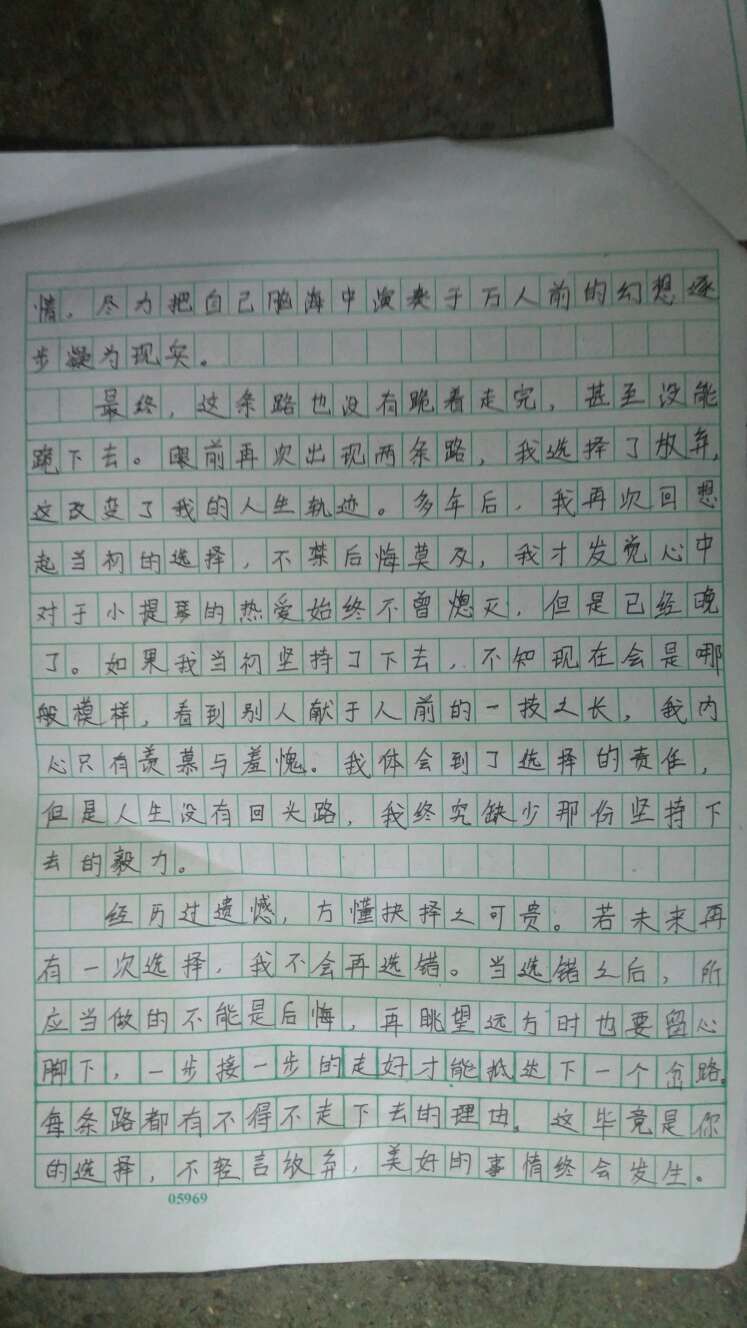 情，尽力把自己脑海中演奏于万人前的幻想逐
步凝为现实。
最终，这条路也没有跪着走完，甚至没能
跪下去。眼前再次出现两条路，我选择了放弃，
这改变了我的人生轨迹。多年后，我再次回想
起当初的选择，不禁后悔莫及，我才发觉心中
对于小提琴的热爱始终不曾熄灭，但是已经晚
了。如果我当初坚持了下去，不知现在会是哪
般模样，看到别人献于人前的一技之长，我内
心只有羡慕与羞愧。我体会到了选择的责任，
但是人生没有回头路，我终究缺少那份坚持下
去的毅力。
经历过遗憾，方懂抉择之可贵。若未来再
有一次选择，我不会再选错。当选错之后，所
应当做的不能是后悔，再眺望远方时也要留心
脚下，一步接一步的走好才能抵达下一个岔路。
每条路都有不得不走下去的理由。这毕竟是你
的选择，不轻言放弃，美好的事情终会发生。
05969